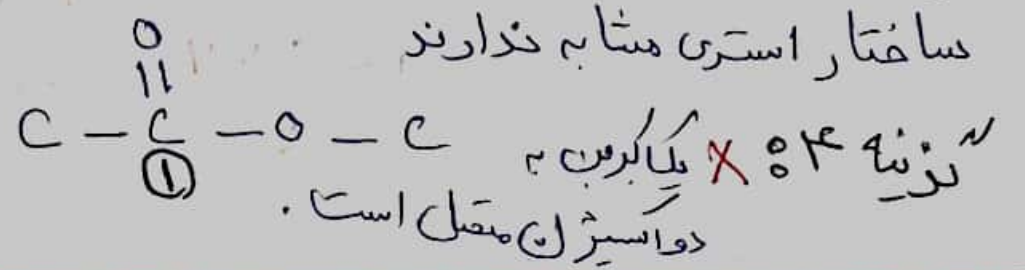 ساختار استری مشابه ندارند
O
||
C - C - O - C
①
گزینه ۴: X یک کربن به
دو اکسیژن متصل است.